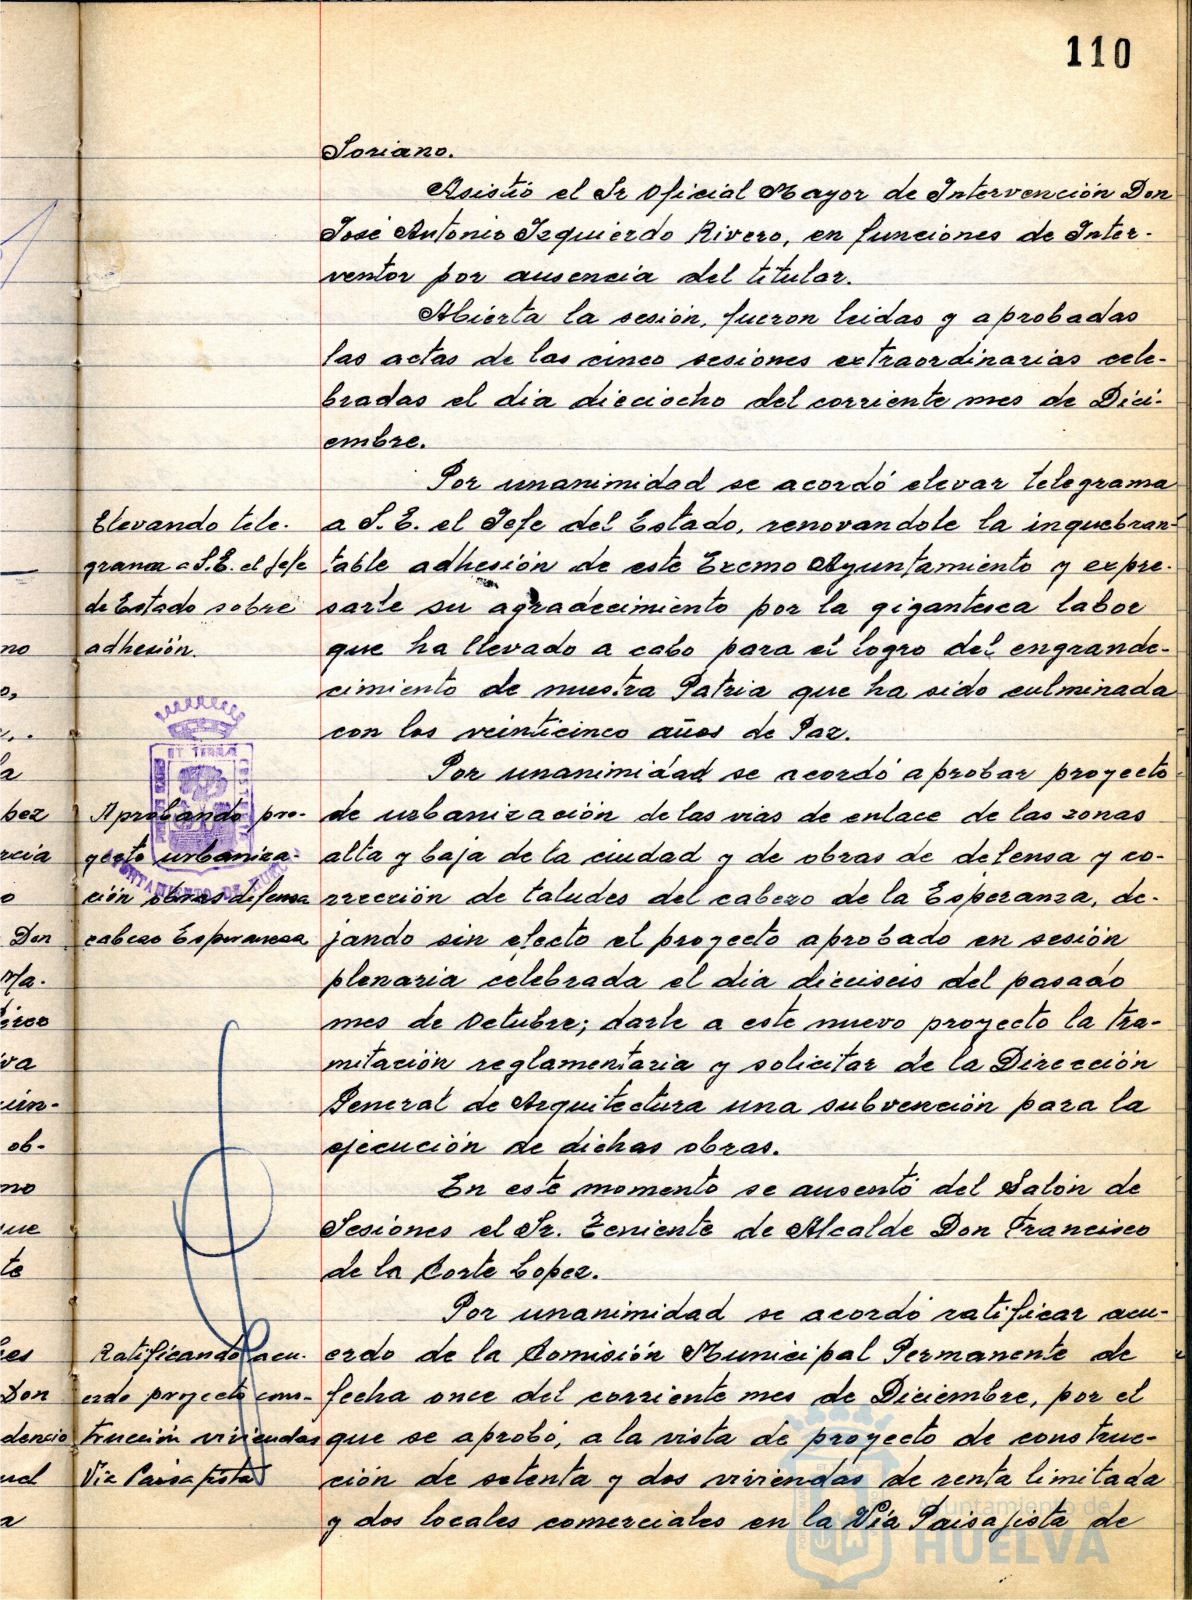 110
Soriano.
Asistió el Sr Oficial Mayor de Intervención Don
José Antonio Izquierdo Rivero, en funciones de Inter-
ventor por ausencia del titular.
Abierta la sesión, fueron leidas y aprobadas
las actas de las cinco sesiones extraordinarias cele-
bradas el dia dieciocho del corriente mes de Dici-
embre.
Por unanimidad se acordó elevar telegrama
Elevando tele-
grama a S.E. el Jefe
de Estado sobre
adhesión.
a S. E. el Jefe del Estado, renovandole la inquebran-
table adhesión de este Excmo Ayuntamiento y expre-
sarle su agradecimiento por la gigantesca labor
que ha llevado a cabo para el logro del engrande-
cimiento de nuestra Patria que ha sido culminada
con los veinticinco años de Paz.
Por unanimidad se acordó aprobar proyecto
Aprobando pro-
yecto urbaniza-
ción obras defensa
cabezo Esperanza
de urbanización de las vias de enlace de las zonas
alta y baja de la ciudad y de obras de defensa y co-
rrección de taludes del cabezo de la Esperanza, de-
jando sin efecto el proyecto aprobado en sesión
plenaria celebrada el dia dieciseis del pasado
mes de Octubre; darle a este nuevo proyecto la tra-
mitación reglamentaria y solicitar de la Dirección
General de Arquitectura una subvención para la
ejecución de dichas obras.
En este momento se ausentó del Salón de
Sesiones el Sr. Teniente de Alcalde Don Francisco
de la Corte Lopez.
Por unanimidad se acordó ratificar acu-
Ratificando acu-
erdo proyecto cons-
trucción viviendas
Via Paisajista
erdo de la Comisión Municipal Permanente de
fecha once del corriente mes de Diciembre, por el
que se aprobó, a la vista de proyecto de construc-
ción de setenta y dos viviendas de renta limitada
y dos locales comerciales en la Vía Paisajista de
Ayuntamiento de
HUELVA